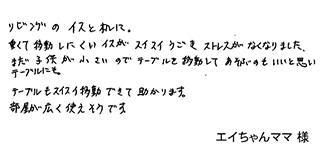 リビングの イスと机に。
重くて移動しにくいイスがスイスイうごき ストレスがなくなりました。
まだ子供が小さいのでテーブルを移動して あそぶのもいいと思い
テーブルにも。
テーブルもスイスイ移動できて助かります。
部屋が広く使えそうです
エイちゃんママ 様